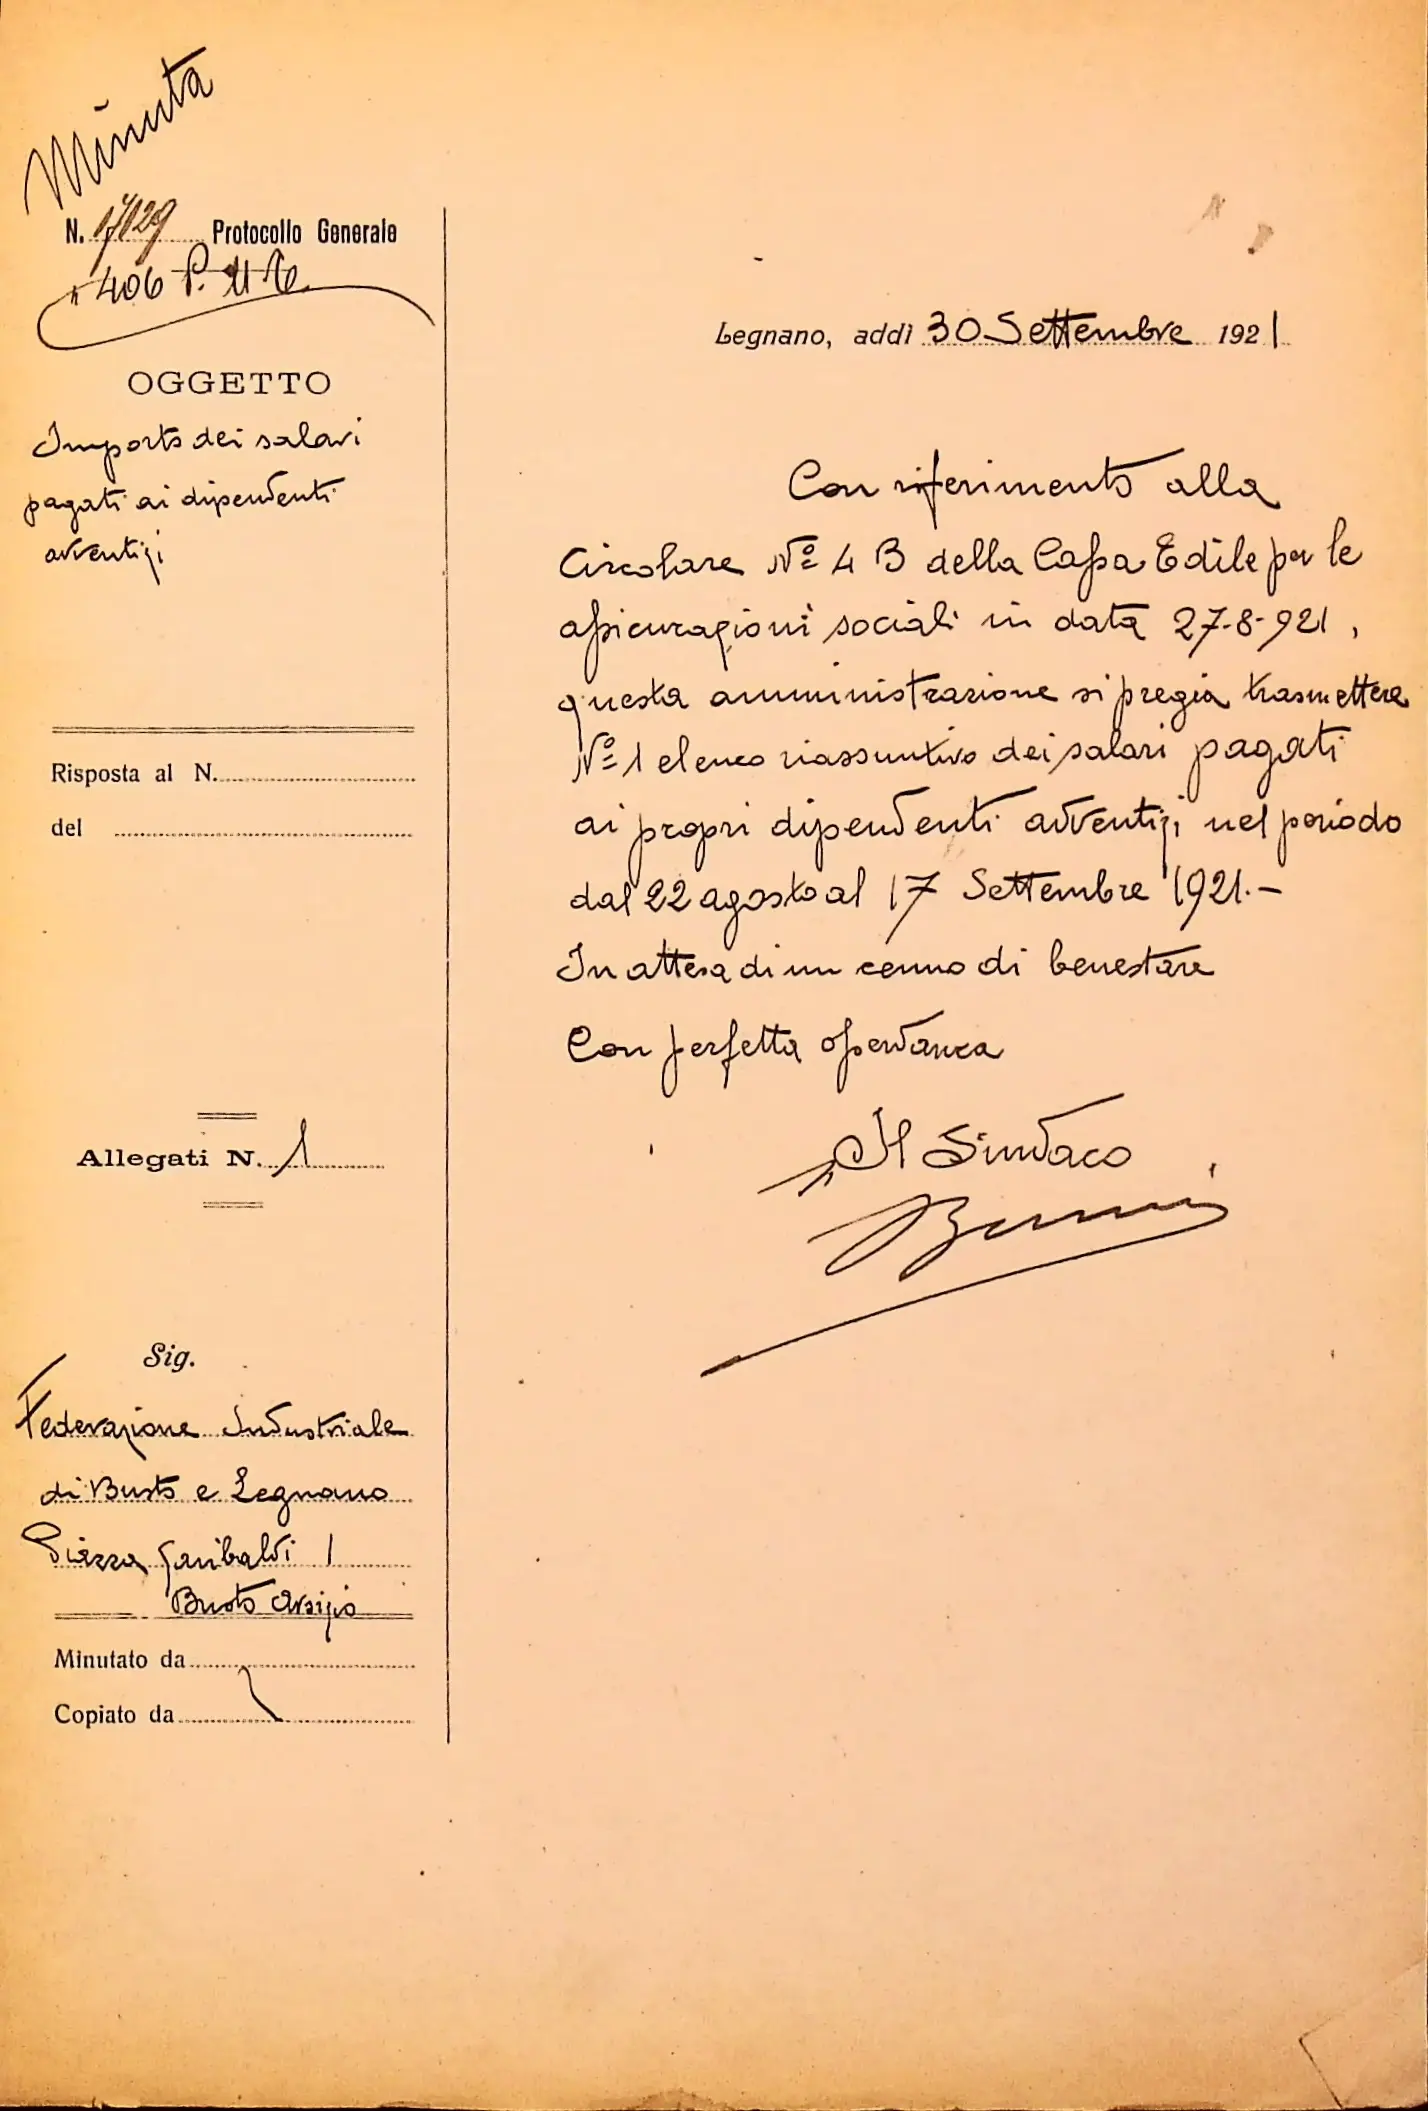 Minuta
N. 17129 Protocollo Generale
" 406 P.
OGGETTO
Importo dei salari
pagati ai dipendenti
avventizi
Risposta al N.
del
Allegati N. 1
Sig.
Federazione Industriale
di Busto e Legnano
Piazza Garibaldi 1
Busto Arsizio
Minutato da
Copiato da
Legnano, addì 30 Settembre 1921
Con riferimento alla
Circolare Nº 4 B della Cassa Edile per le
assicurazioni sociali in data 27-8-921,
questa amministrazione si pregia trasmettere
Nº 1 elenco riassuntivo dei salari pagati
ai propri dipendenti avventizi nel periodo
dal 22 agosto al 17 Settembre 1921.-
In attesa di un cenno di benestare
Con perfetta osservanza
Il Sindaco